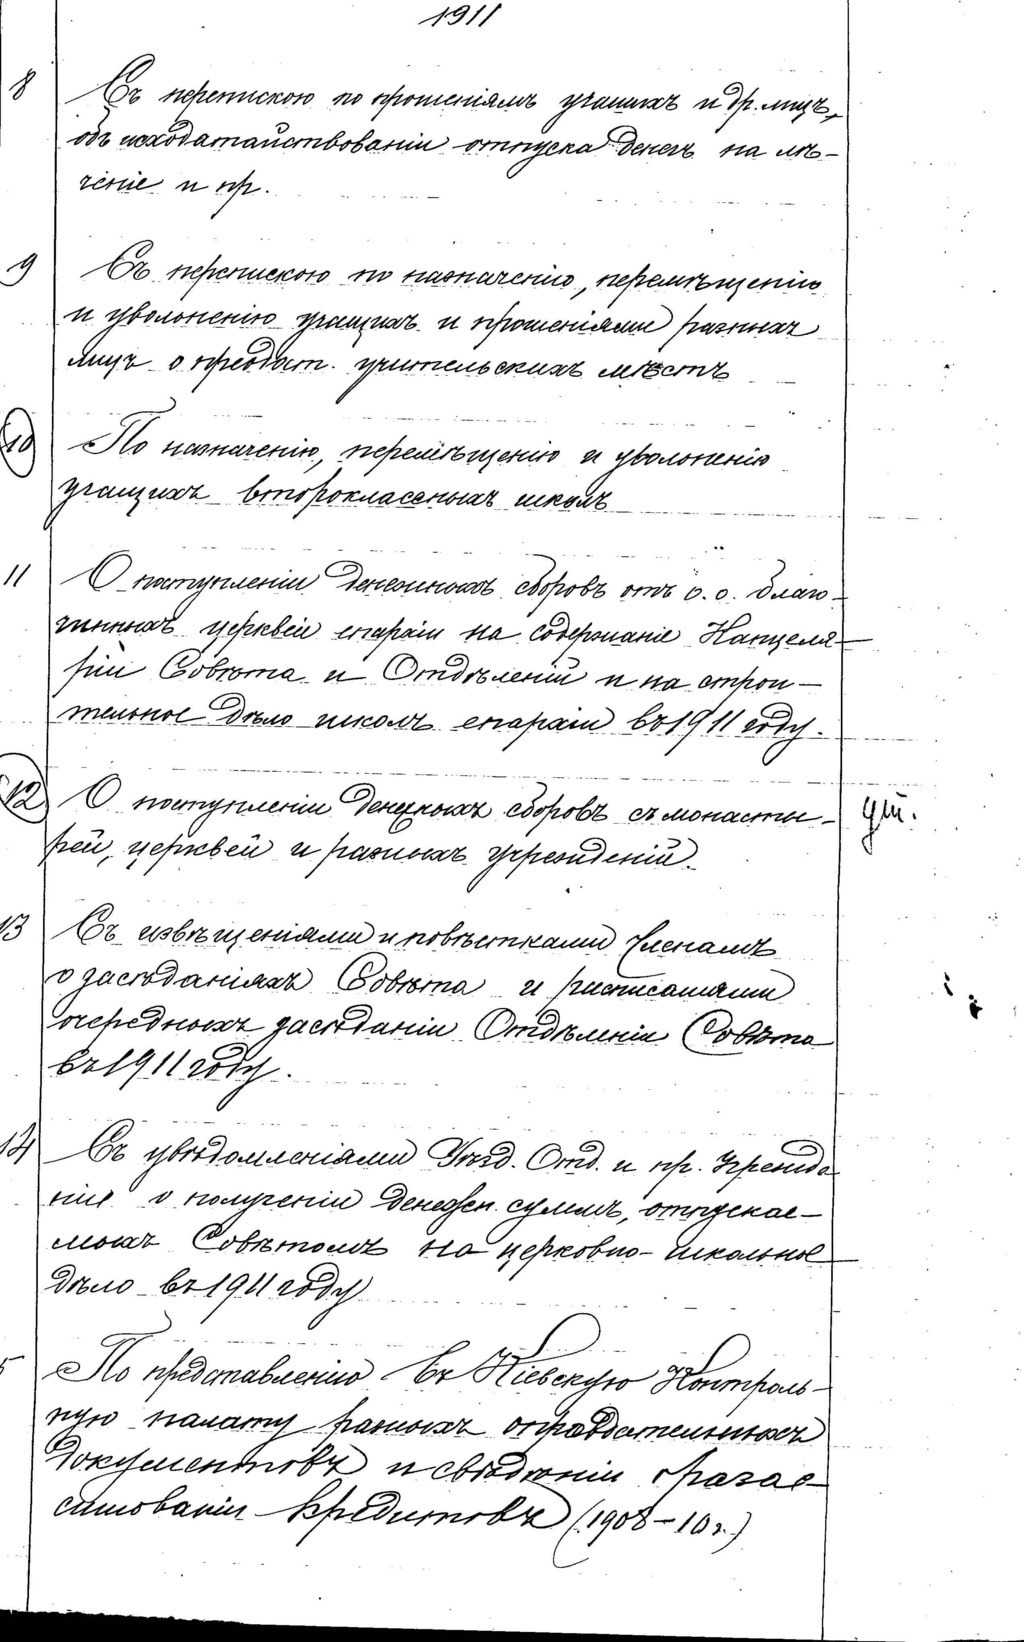 1911
8 Съ перепискою по прошеніямъ учащихъ и др. лицъ,
объ исходатайствованіи отпуска денегъ на лѣ-
ченіе и пр.
9 Съ перепискою по назначенію, перемѣщенію
и увольненію учащихъ и прошеніями разныхъ
лицъ о предост. учительскихъ мѣстъ
10 По назначенію, перемѣщенію и увольненію
учащихъ второклассныхъ школъ
11 О поступленіи денежныхъ сборовъ отъ о.о. благо-
чинныхъ церквей епархіи на содержаніе Канцеля-
ріи Совѣта и Отдѣленій и на строи-
тельное дѣло школъ епархіи въ 1911 году.
12 О поступленіи денежныхъ сборовъ съ монасты-
рей, церквей и разныхъ учрежденій.
13 Съ извѣщеніями и повѣстками Членамъ
о засѣданіяхъ Совѣта и росписаніями
очередныхъ засѣданій Отдѣленій Совѣта
въ 1911 году.
14 Съ увѣдомленіями Уѣзд. Отд. и пр. Учрежде
ній о полученіи денежн. суммъ, отпускае-
мыхъ Совѣтомъ на церковно-школьное
дѣло въ 1911 году
5 По представленію въ Кіевскую Контроль-
ную палату разныхъ оправдательныхъ
документовъ и свѣдѣній о разас-
сигнованіи кредитовъ (1908-10 г.)